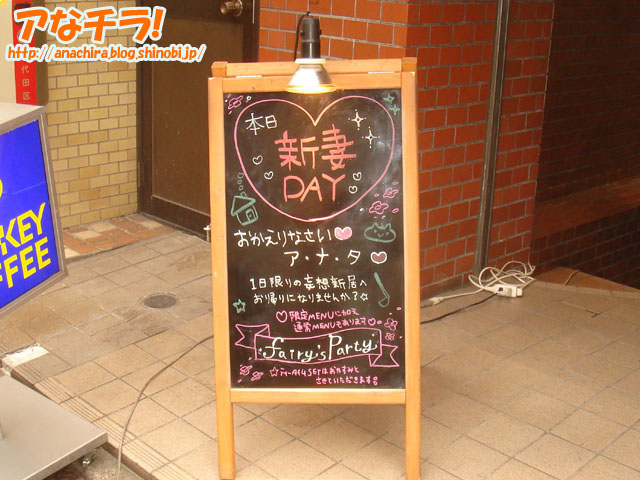 アなチラ!
http://anachira.blog.shinobi.jp/
代田区
KEY
FFEE
本日
新妻
DAY
おかえりなさい
ア・ナ・タ
1日限りの妄想新居へ
お帰りになりませんか?
限定MENUに加え
通常MENUもあります
fairy's Party
ティータイムSETはおやすみと
させていただきます。